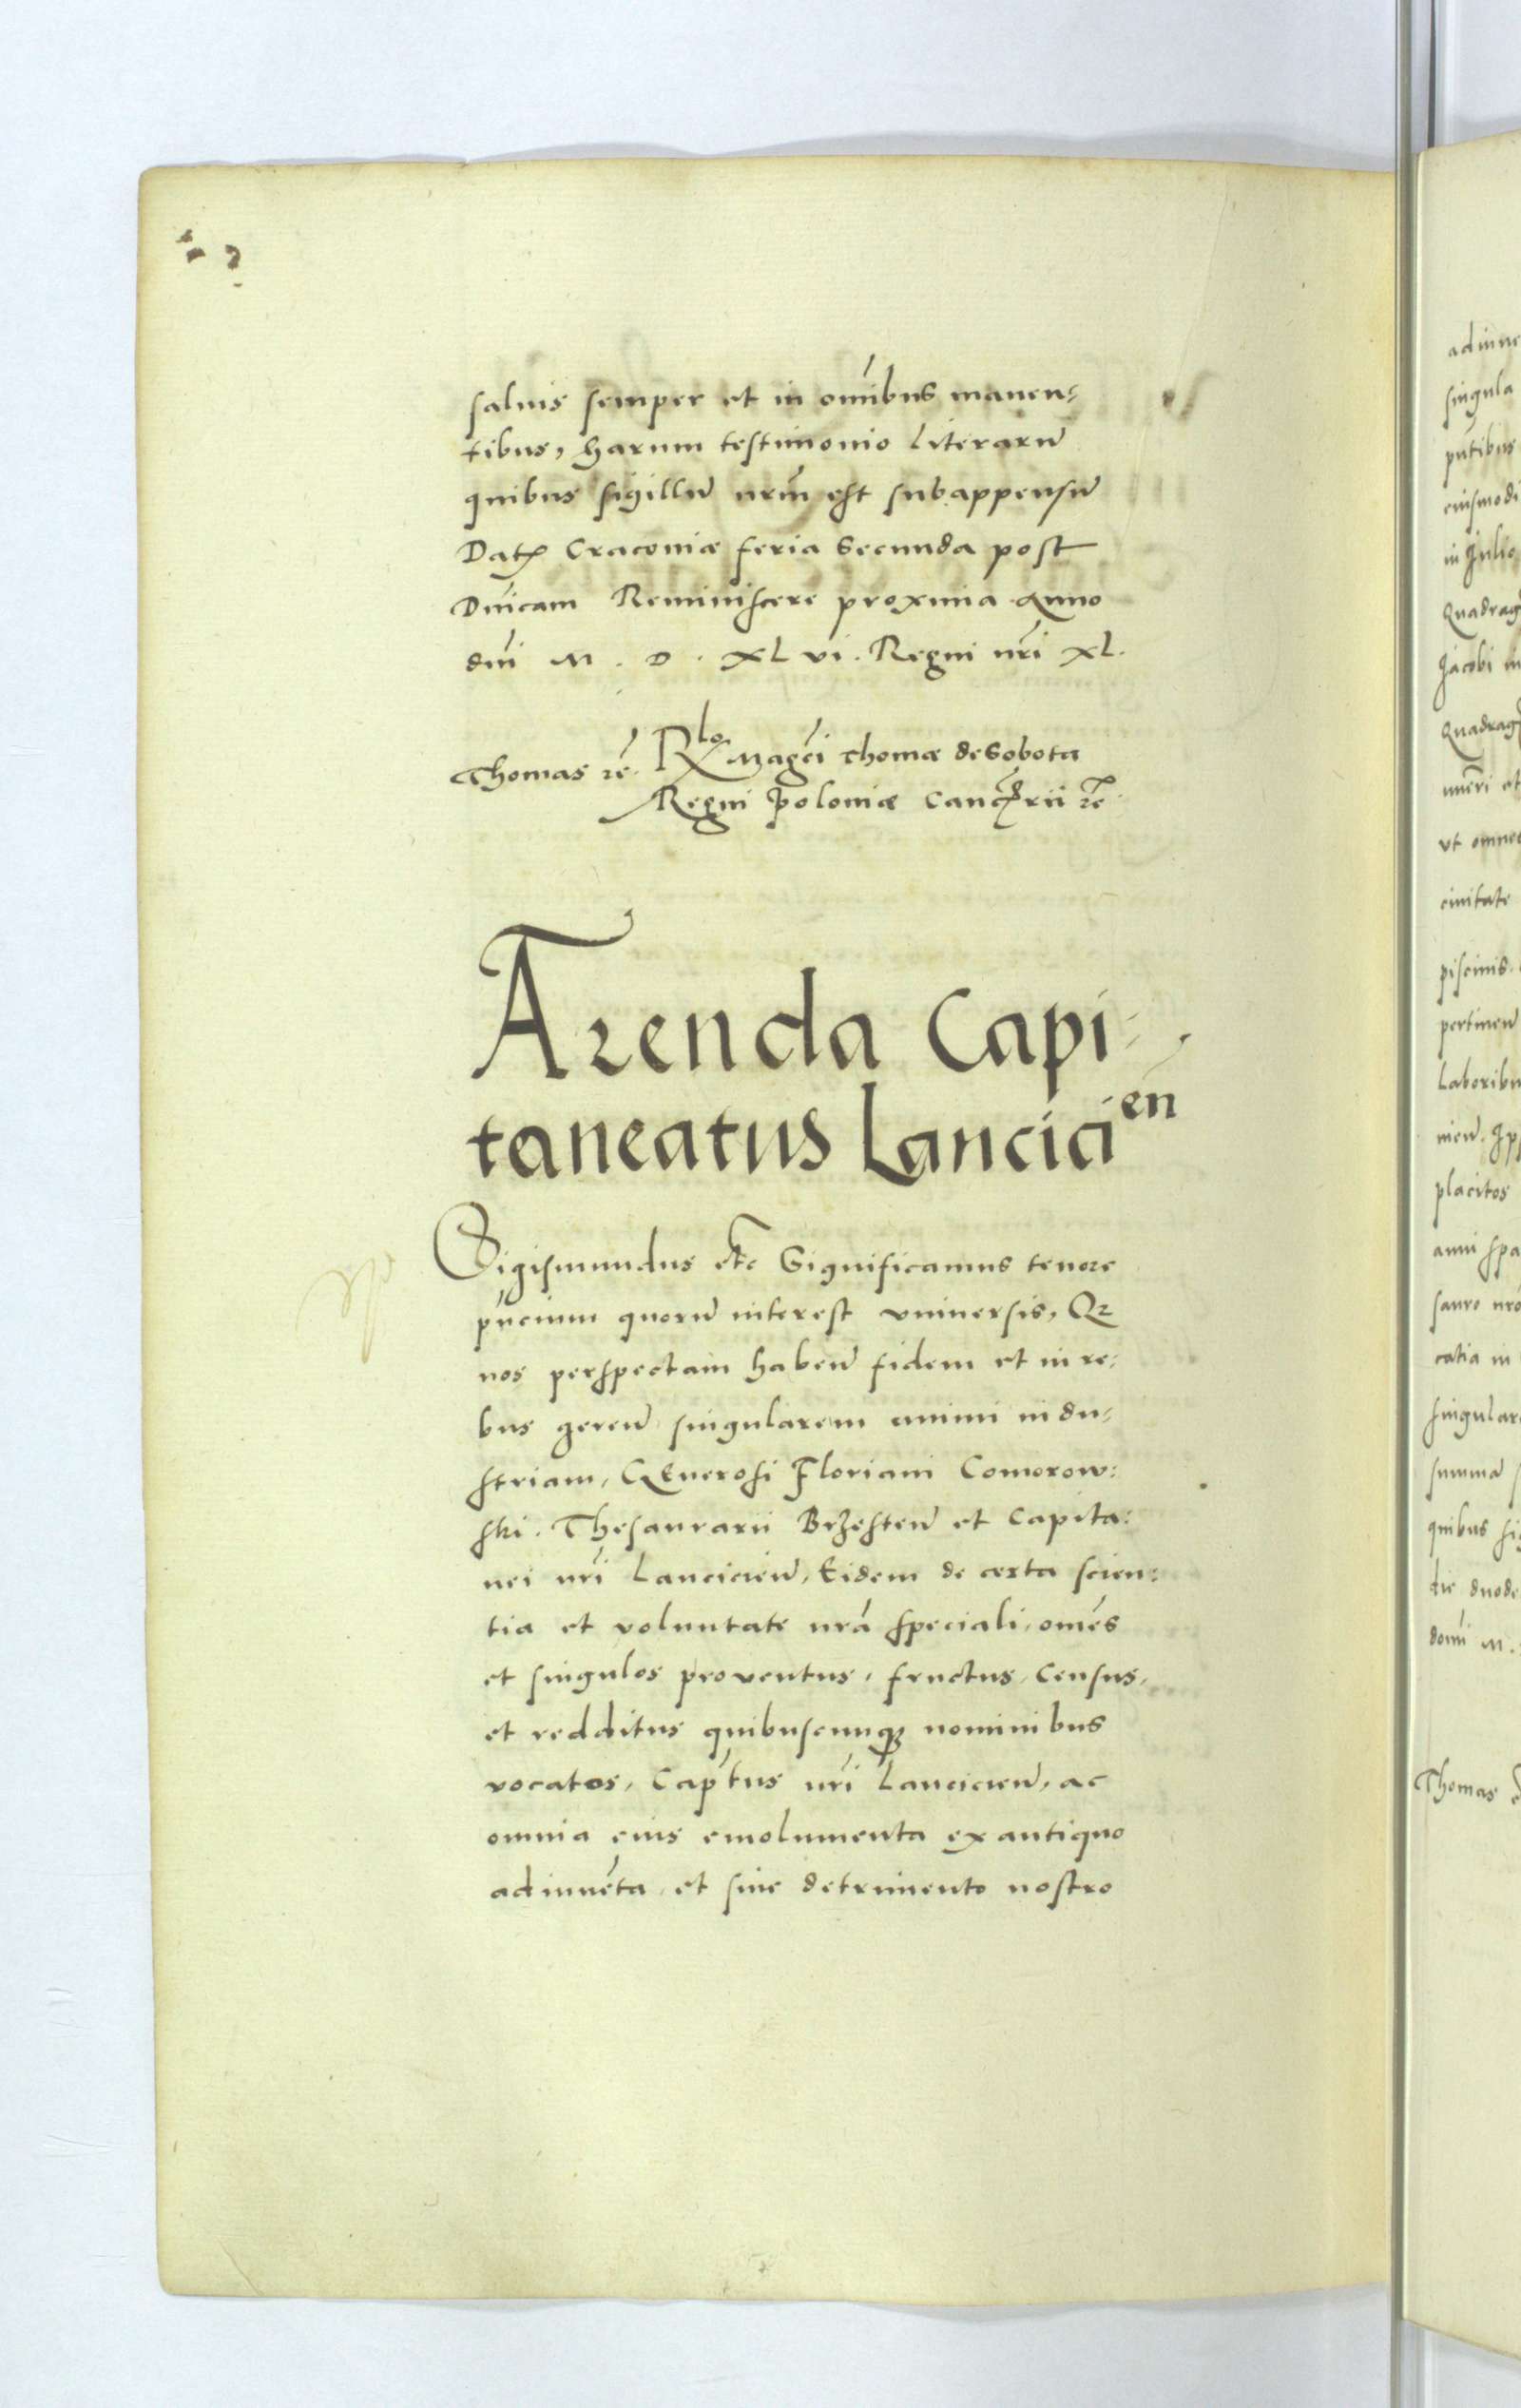 salvis semper et in omībus manen-
tibus, harum testimonio literarū
quibus sigillū nrm̄ est subappensū
Dat Cracoviæ feria Secunda post
Dnīcam Reminiscere proxima Anno
dnī M. D. XLvi. Regni nrī XL.
Thomas rē. Rlo Magcī thomæ de Sobota
Regni Poloniæ Cancrii rē
Arenda Capi-
taneatus Lancicien
Sigismundus etc Significamus tenore
pn̄cium quorū interest vniversis, Qz
nos perspectam habeñ fidem et in re-
bus gereñ singularem animi indu-
striam, Generosi Floriani Comorow:
ski. Thesaurarii Brzesteñ et Capita:
nei nrī Lancicieñ, Eidem de certa scien:
tia et voluntate nrā speciali, omēs
et singulos proventus, fructus, Census,
et redditus quibuscunqз nominibus
vocatos, Cap̄tus nrī Lancicieñ, ac
omnia eius emolumenta ex antiquo
adinvēta, et sine detrimento nostro
adinve
singula
pn̄tibus
eiusmodi
in Julio
Quadrag
Jacobi in
Quadrag
nn̄eri et
vt omnes
civitate
piscinis
pertineñ
Laboribu
nieñ.
placitos
anni spa
sauro nrō
catia in
singular
summā
quibus si
die duode
domī M.
Thomas